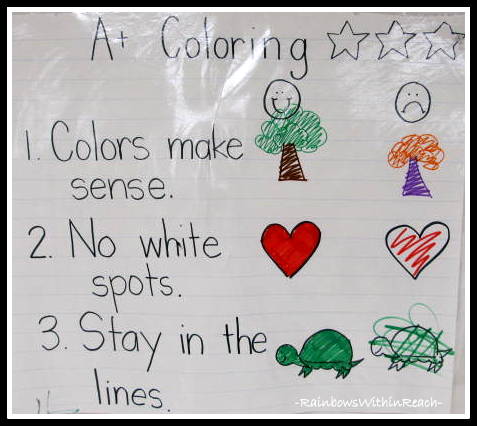 A+ Coloring
1. Colors make
sense.
2. No white
spots.
3. Stay in the
lines.
-RainbowsWithinReach-